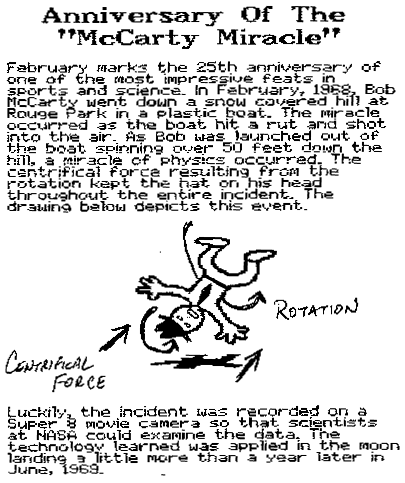 Anniversary Of The
"McCarty Miracle"
February marks the 25th anniversary of
one of the most impressive feats in
sports and science. In February, 1968, Bob
McCarty went down a snow covered hill at
Rouge Park in a plastic boat. The miracle
occurred as the boat hit a rut and shot
into the air. As Bob was launched out of
the boat spinning over 50 feet down the
hill, a miracle of physics occurred. The
centrifical force resulting from the
rotation kept the hat on his head
throughout the entire incident. The
drawing below depicts this event.
ROTATION
CENTRIFICAL
FORCE
Luckily, the incident was recorded on a
Super 8 movie camera so that scientists
at NASA could examine the data. The
technology learned was applied in the moon
landing a little more than a year later in
June, 1969.